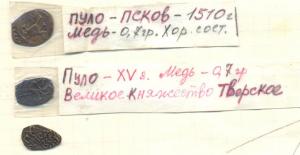 Пуло - Псков - 1510 г
Медь - 0,7гр. Хор. сост.
Пуло - XV в. Медь - 0,7 гр
Великое Княжество Тверское